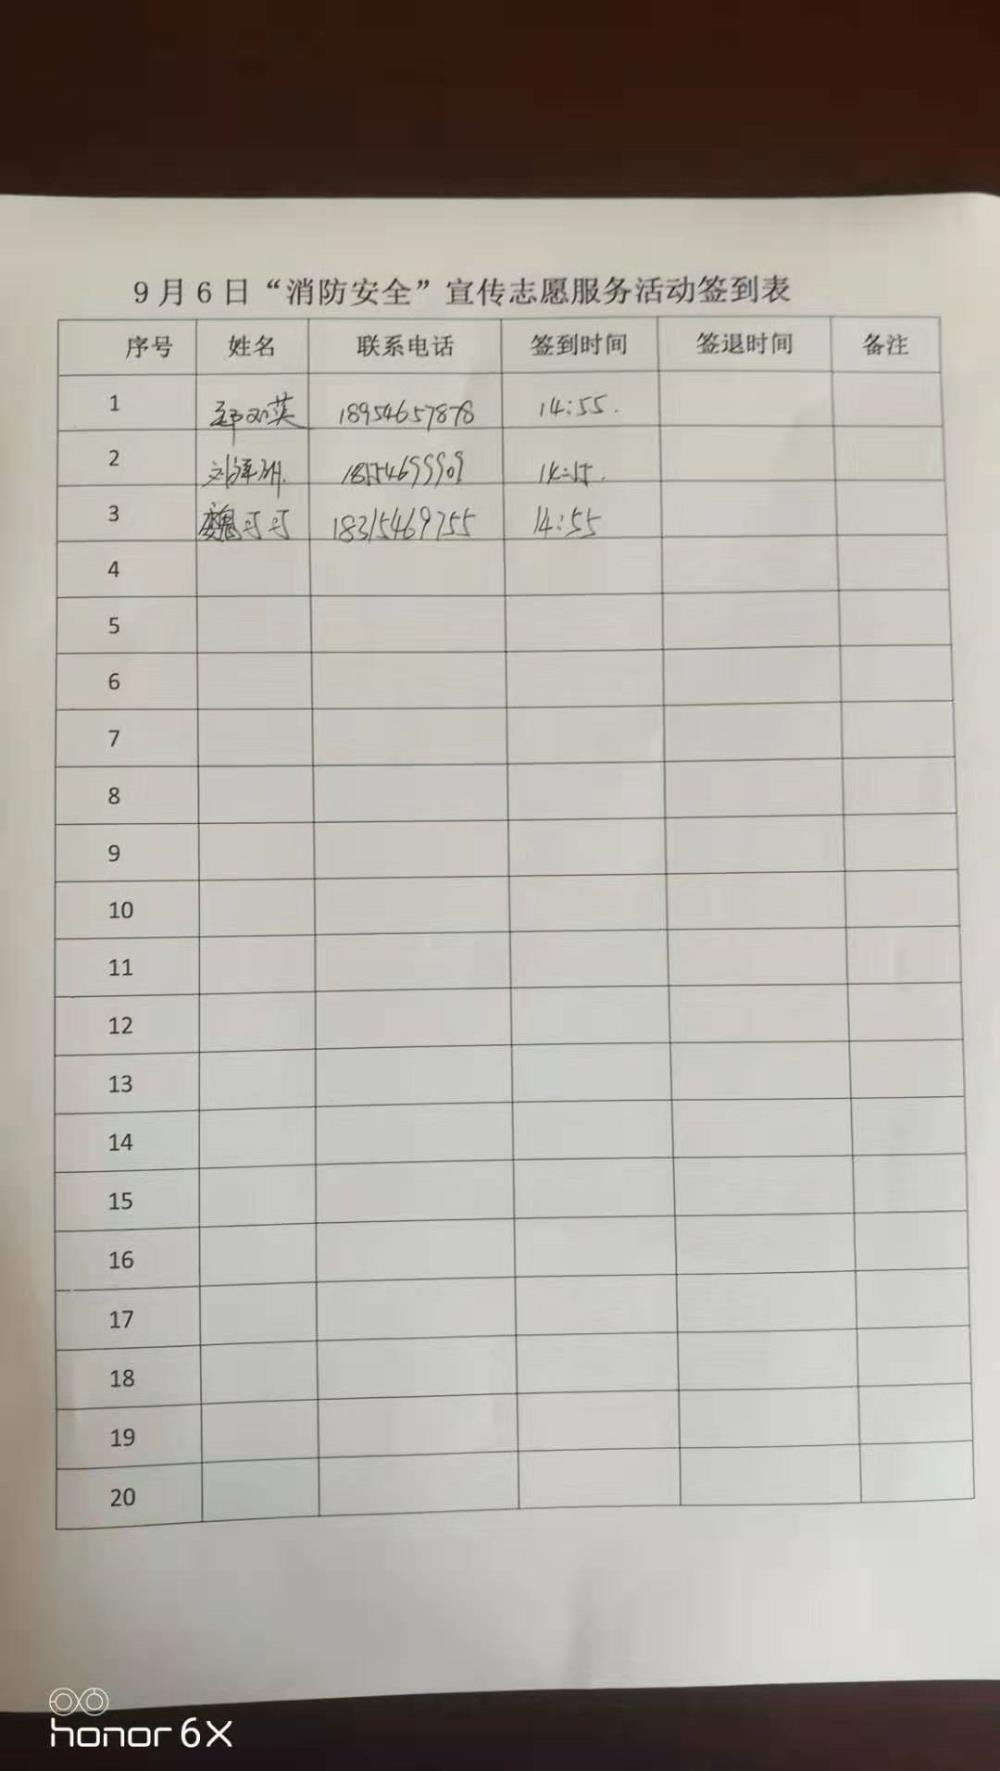 9月6日“消防安全”宣传志愿服务活动签到表
序号 姓名 联系电话 签到时间 签退时间 备注
1 英 18954657878 14:55.
2 刘泽洲.
3 魏可可 18315469755 14:55
4
5
6
7
8
9
10
11
12
13
14
15
16
17
18
19
20
honor 6X